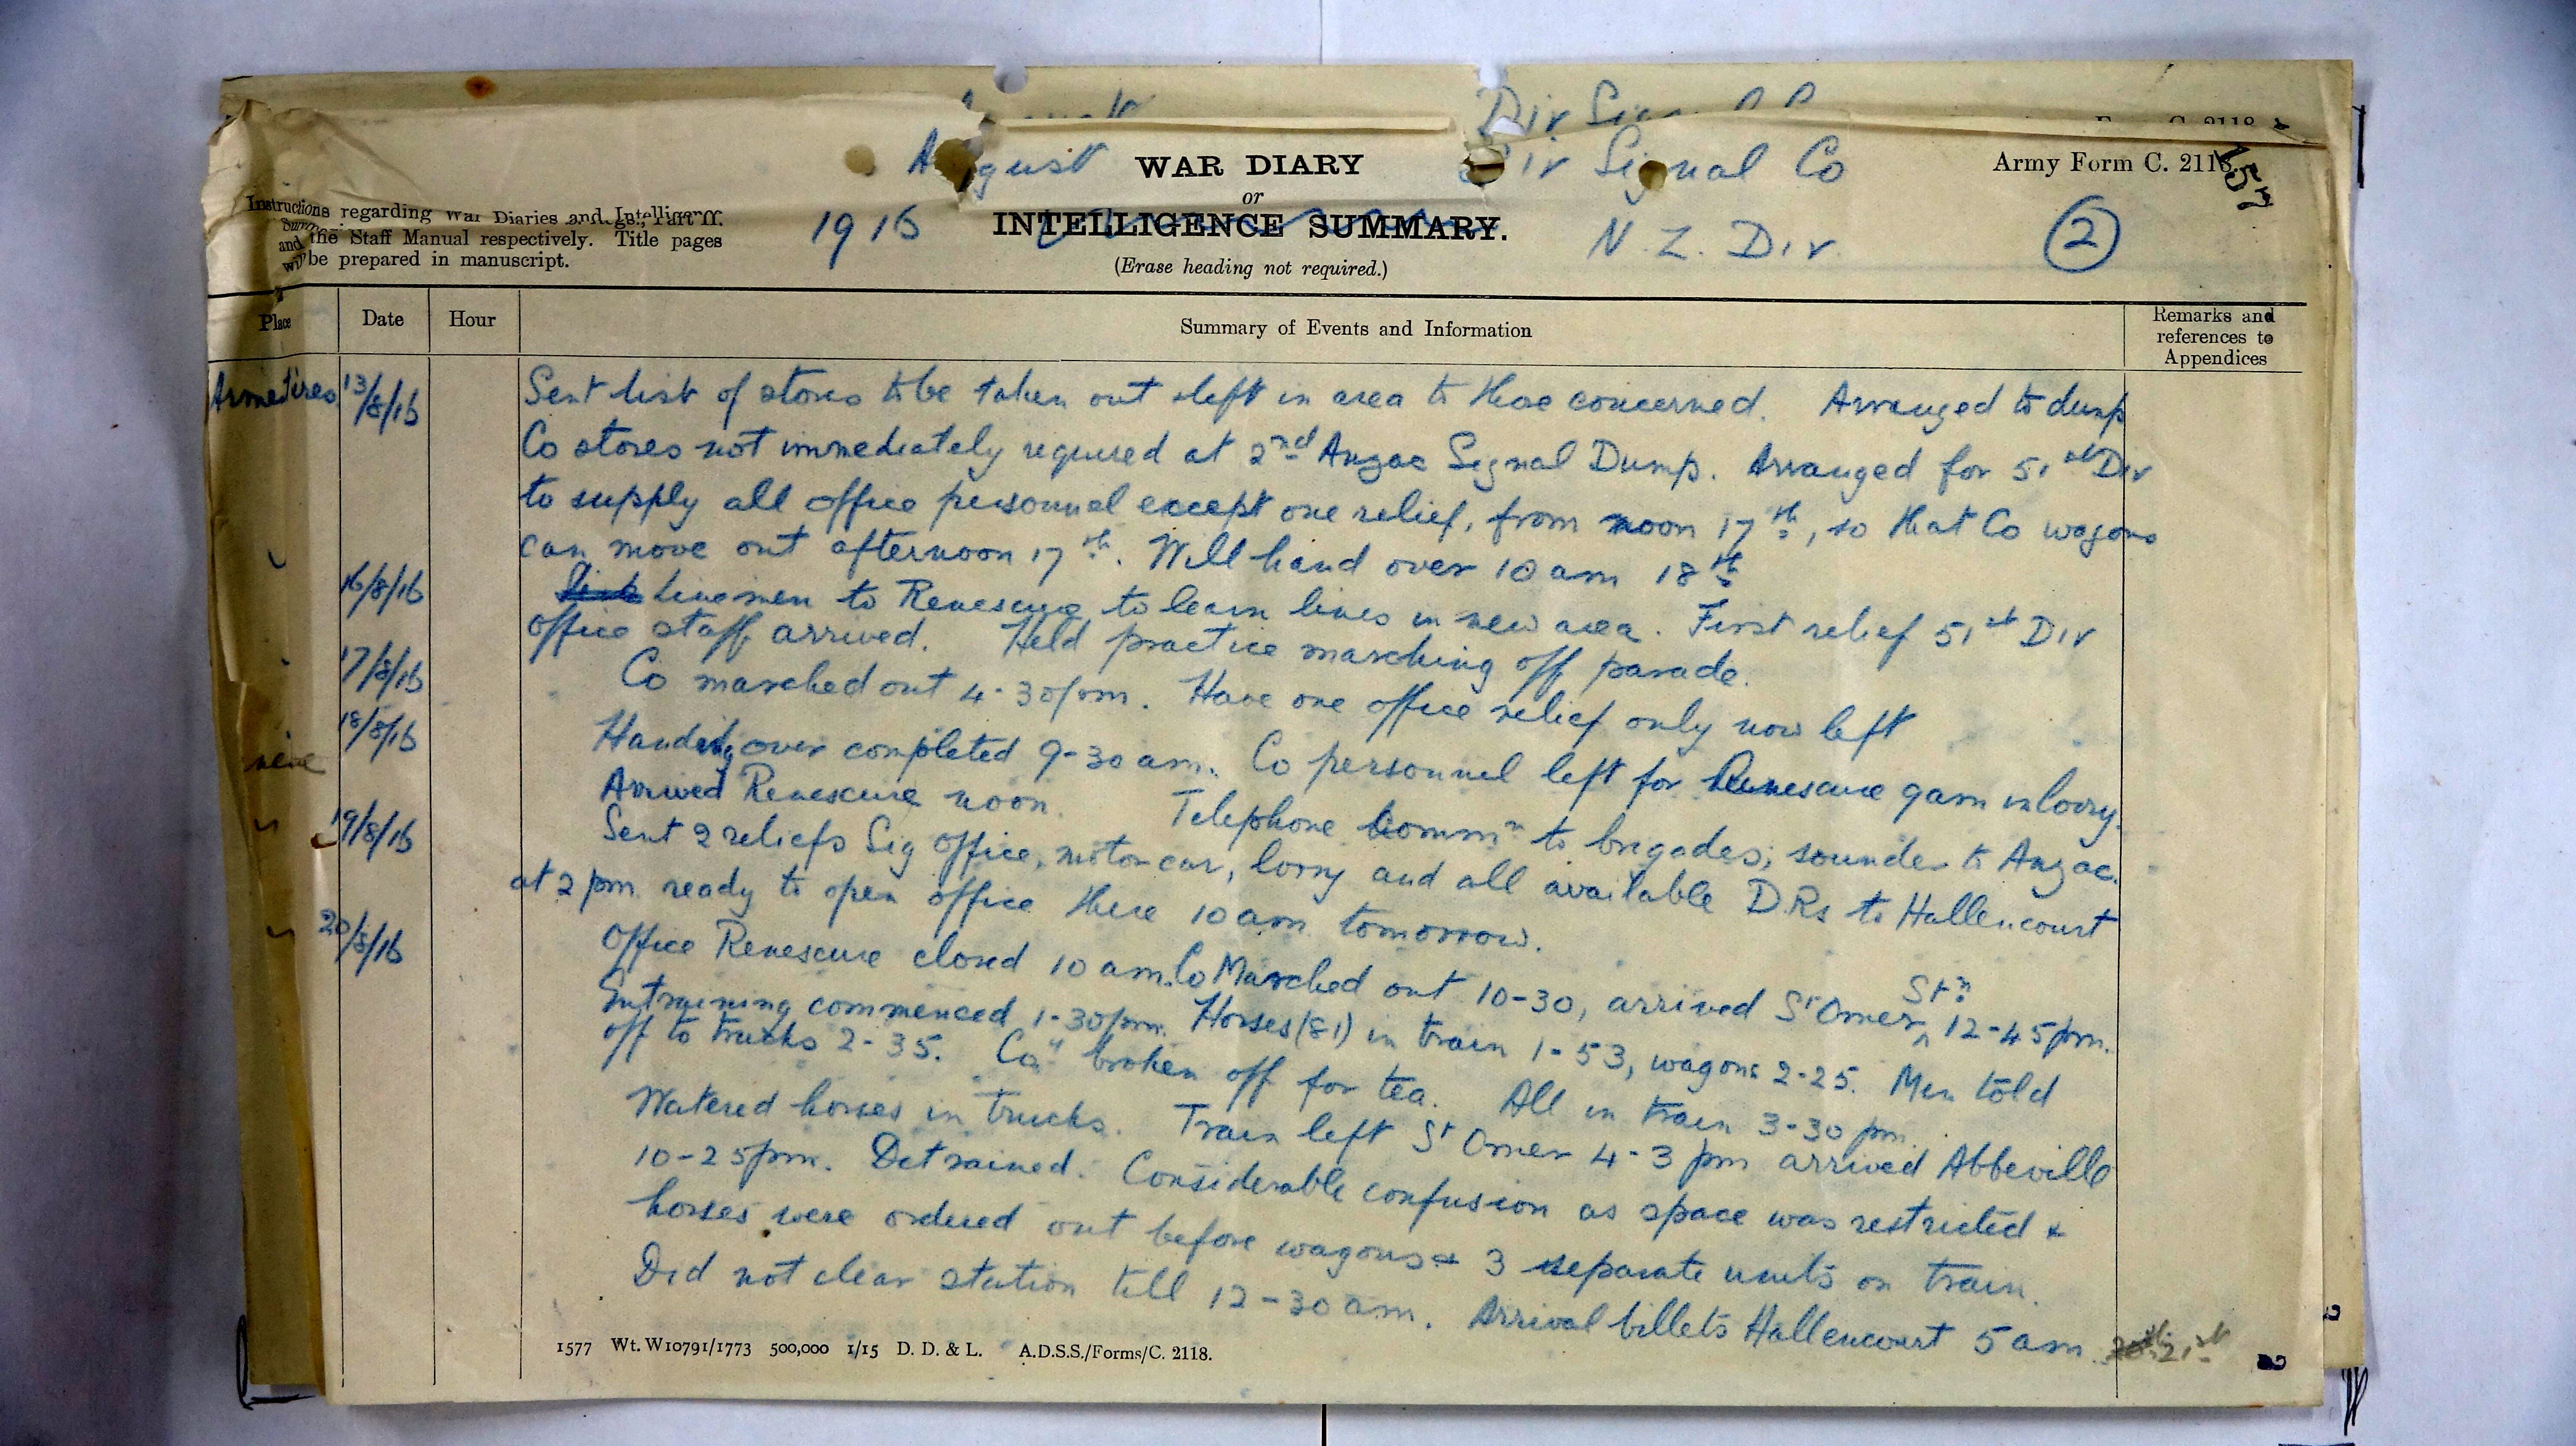 Div Sig
August WAR DIARY Div Signal Co Army Form C. 2118.
or
157
Instructions regarding War Diaries and Intelligence
Part II.
and the Staff Manual respectively. Title pages
will be prepared in manuscript.
1916 INTELLIGENCE SUMMARY. N. Z. Div. 2
(Erase heading not required.)
Place Date Hour Summary of Events and Information Remarks and references to Appendices
Armetires 13/8/16 Sent list of stores to be taken out & left in area to those concerned. Arranged to dump
Co stores not immediately required at 2nd Anzac Signal Dump. Arranged for 51st Div
to supply all office personnel except one relief, from noon 17th, so that Co wagons
can move out afternoon 17th. Will hand over 10 am 18th
16/8/16 Linemen to Renescure to learn lines in new area. First relief 51st Div
office staff arrived. Held practice marching off parade.
17/8/16 Co marched out 4-30pm. Have one office relief only now left
18/8/16 Handing over completed 9-30 am. Co personnel left for Renescure 9am in lorry.
Arrived Renescure noon. Telephone Commn to brigades; sounder to Anzac.
19/8/16 Sent 2 reliefs Sig office, motor car, lorry and all available D.Rs to Hallencourt
at 2 pm ready to open office there 10 am tomorrow.
20/8/16 Office Renescure closed 10 am. Co Marched out 10-30, arrived St Omer Stn 12-45pm.
Entraining commenced 1-30pm. Horses (81) in train 1-53, wagons 2-25. Men told
off to trucks 2-35. Coy broken off for tea. All in train 3-30 pm.
Watered horses in trucks. Train left St Omer 4-3 pm arrived Abbeville
10-25pm. Detrained. Considerable confusion as space was restricted &
horses were ordered out before wagons & 3 separate units on train.
Did not clear station till 12-30 am. Arrival billets Hallencourt 5 am 21st
1577 Wt. W10791/1773 500,000 1/15 D. D. & L. A.D.S.S./Forms/C. 2118.